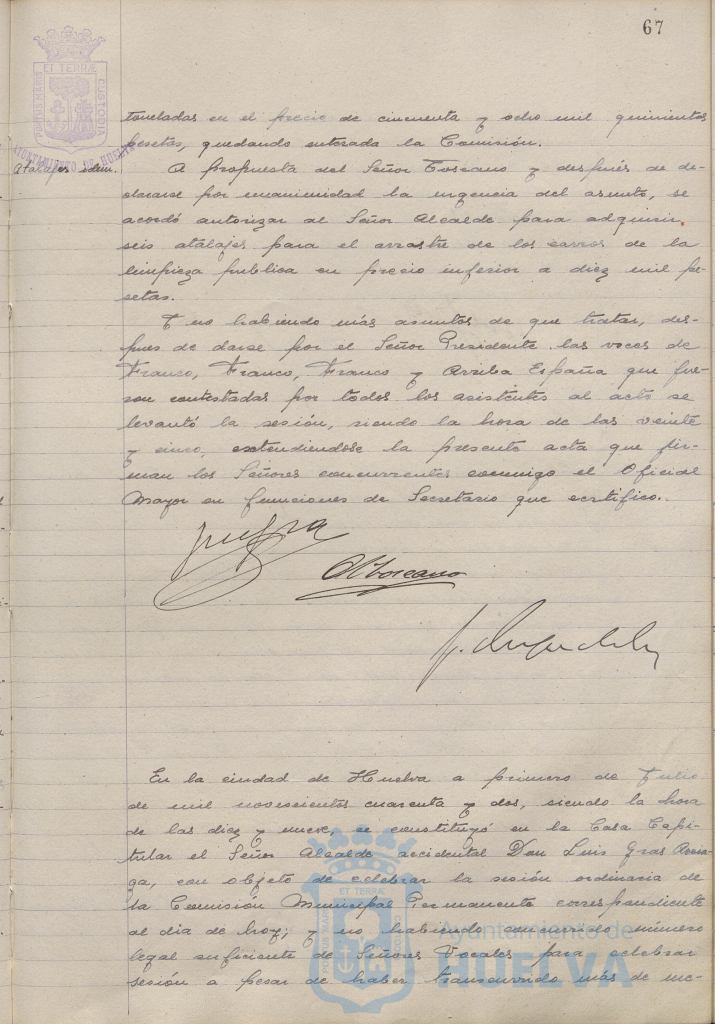 67
ET TERRÆ
PORTUS MARIS
CUSTODIA
AYUNTAMIENTO DE HUELVA
toneladas en el precio de cincuenta y ocho mil quinientas
pesetas, quedando enterada la Comisión.
Atalajes idem.
A propuesta del Señor Toscano y después de de-
clararse por unanimidad la urgencia del asunto, se
acordó autorizar al Señor Alcalde para adquirir
seis atalajes para el arrastre de los carros de la
limpieza publica en precio inferior a diez mil pe-
setas.
Y no habiendo más asuntos de que tratar, des-
pues de darse por el Señor Presidente las voces de
Franco, Franco, Franco y Arriba España que fue-
ron contestadas por todos los asistentes al acto se
levantó la sesión, siendo la hora de las veinte
y cinco, extendiendose la presente acta que fir-
man los Señores concurrentes conmigo el Oficial
Mayor en funciones de Secretario que certifico.
En la ciudad de Huelva a primero de Julio
de mil novescientos cuarenta y dos, siendo la hora
de las diez y nueve, se constituyó en la Casa Capi-
tular el Señor Alcalde accidental Don Luis Gras
con objeto de celebrar la sesión ordinaria de
la Comisión Municipal Permanente correspondiente
al dia de hoy; y no habiendo concurrido número
legal suficiente de Señores Vocales para celebrar
sesión a pesar de haber transcurrido más de me-
ET TERRÆ
PORTUS MARIS
CUSTODIA
Ayuntamiento de
HUELVA